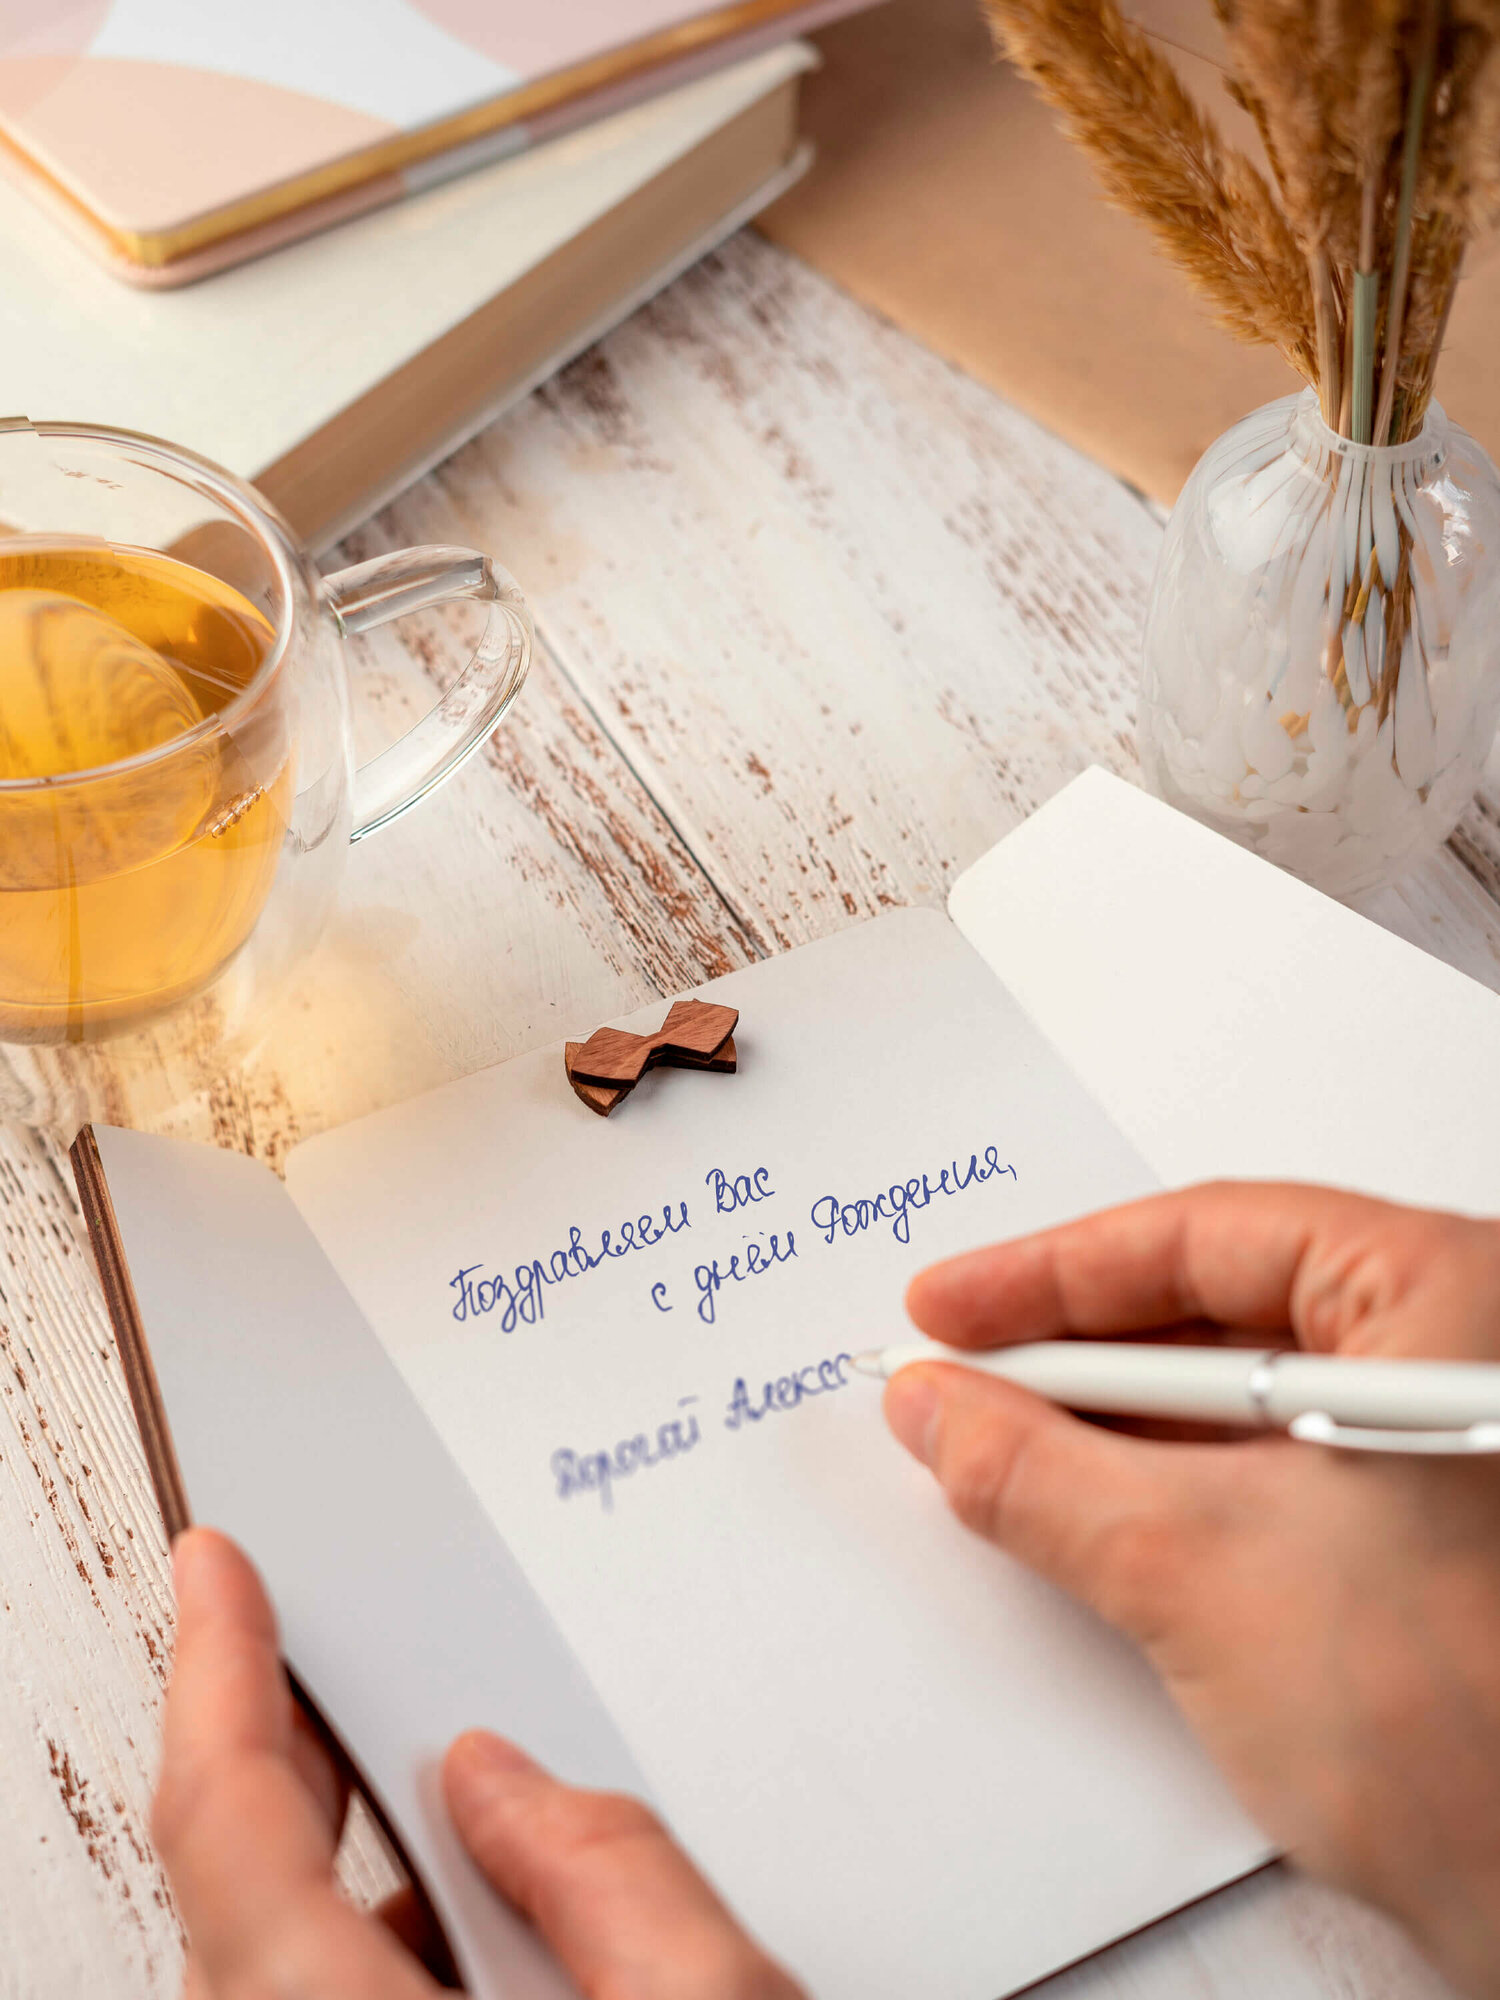 Поздравляем Вас
с днём Рождения,
Дорогой Алекс